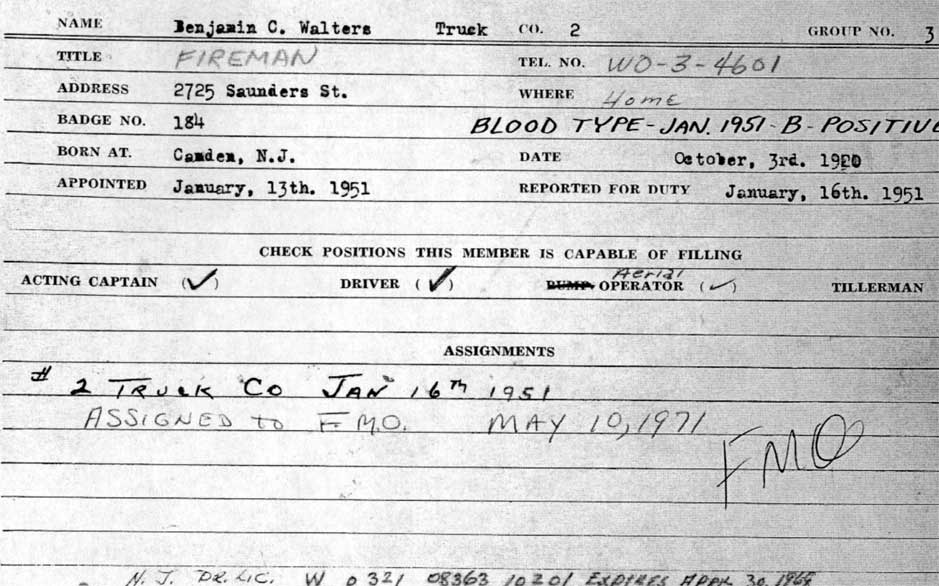 NAME Benjamin C. Walters Truck CO. 2 GROUP NO. 3
TITLE FIREMAN TEL. NO. WO-3-4601
ADDRESS 2725 Saunders St. WHERE Home
BADGE NO. 184 BLOOD TYPE - JAN. 1951 - B - POSITIVE
BORN AT. Camden, N.J. DATE October, 3rd. 1920
APPOINTED January, 13th. 1951 REPORTED FOR DUTY January, 16th. 1951
CHECK POSITIONS THIS MEMBER IS CAPABLE OF FILLING
Aerial
ACTING CAPTAIN (✓) DRIVER (✓) PUMP OPERATOR (✓) TILLERMAN
ASSIGNMENTS
# 2 TRUCK CO JAN 16TH 1951
ASSIGNED to F.M.O. MAY 10, 1971
FMO
N.J. DR. LIC. W 0321 08363 10201 EXPIRES APPR 30, 1968